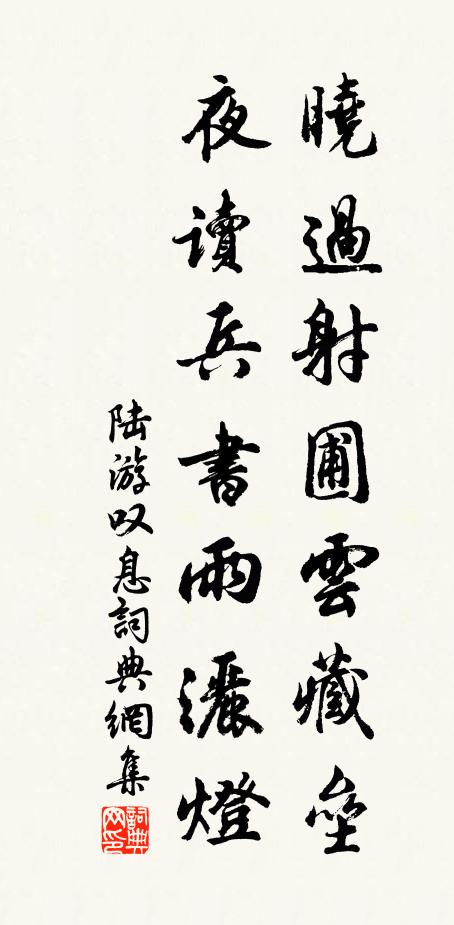 曉過射圃雲藏壘
夜讀兵書雨灑燈
陆游叹息詞典網集
詞典網印